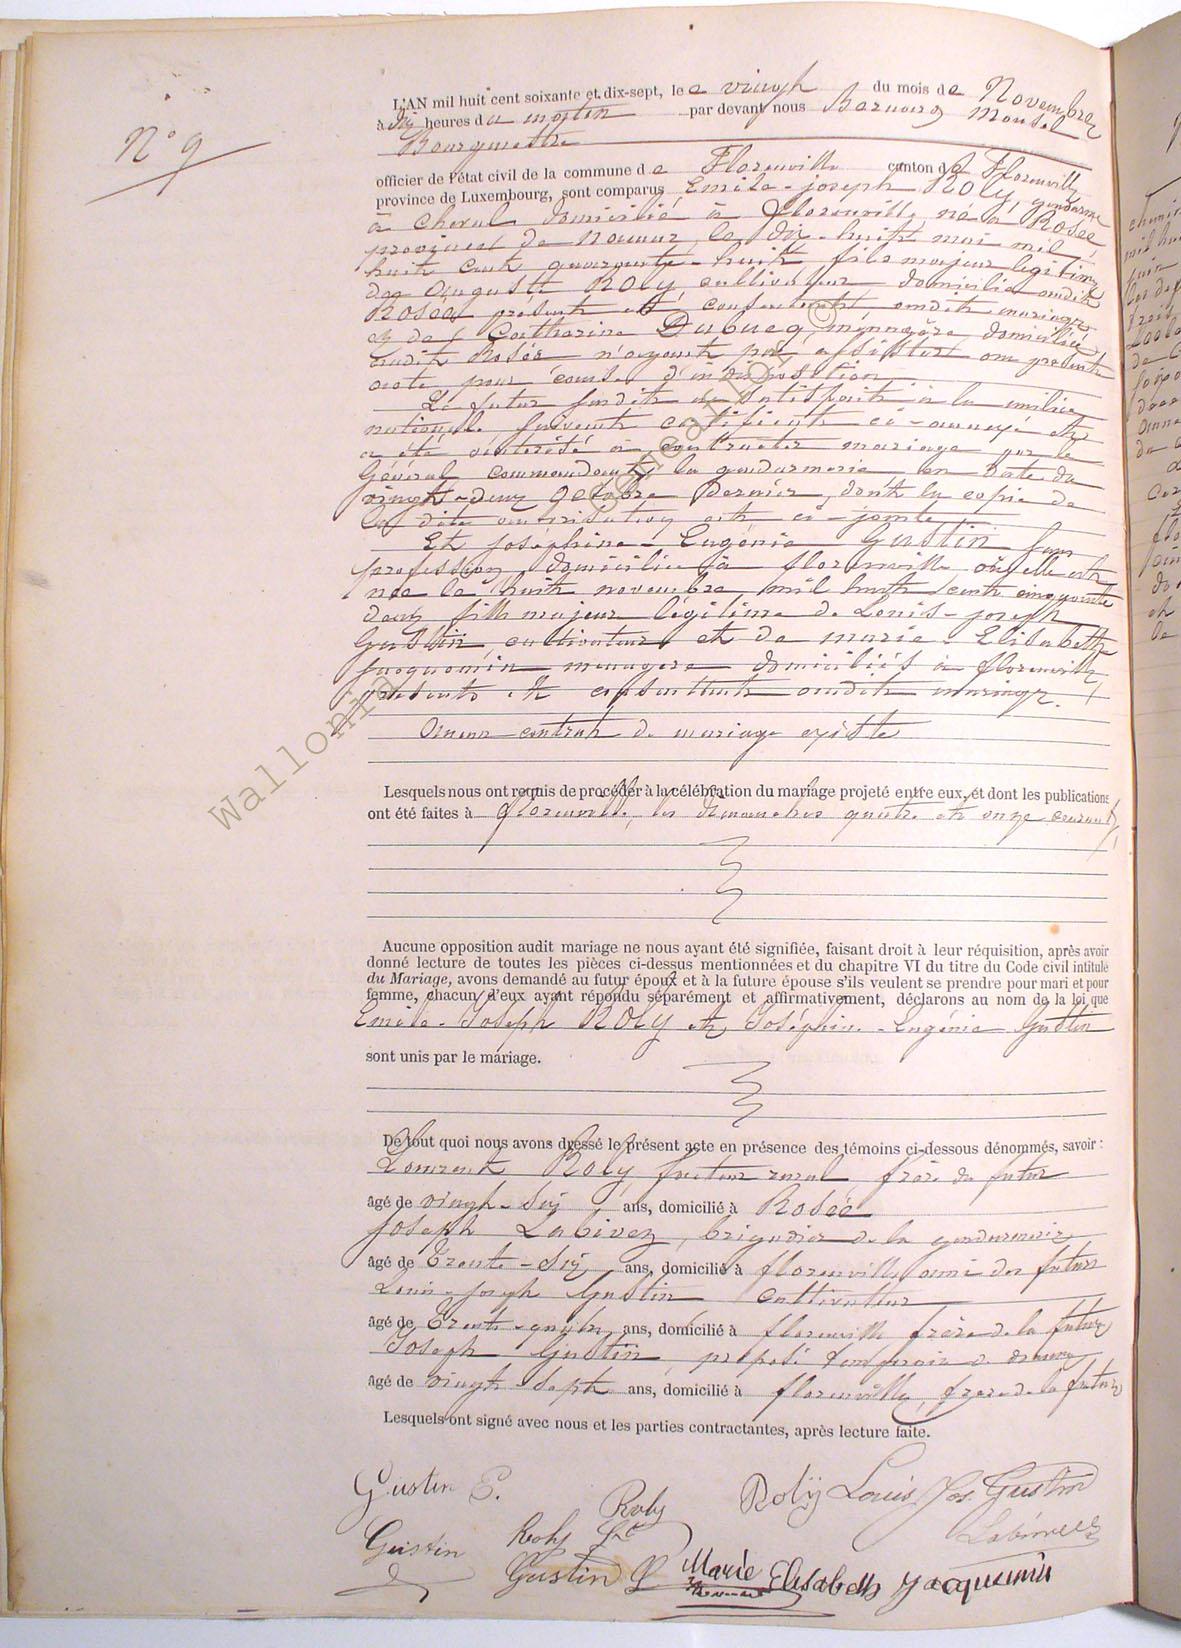 N° 9
L'AN mil huit cent soixante et dix-sept, le vingt du mois de Novembre
à dix heures du matin par devant nous Bernard Mousel
Bourgmestre
officier de l'état civil de la commune de Florenville canton de Florenville
province de Luxembourg, sont comparus Emile-joseph ROLY, gendarme
à cheval domicilié à florenville, né à Rosée
province de Namur, le dix-huit mai mil
huit cent quarante-huit, fils majeur légitime
de Auguste ROLY, cultivateur domicilié audit
Rosée présent et consentant audit mariage
et de Catharine Dubucq, ménagère domiciliée
audit Rosée n'ayant pu assister au présent
acte, pour cause d'indisposition
Le futur satisfait à la milice
nationale suivant certificat ci-annexé et
a été autorisé à contracter mariage par le
Général commandant la gendarmerie en date du
vingt-deux Octobre dernier, dont la copie de
la dite autorisation est ci-jointe
Et joséphine-Eugénie GUSTIN sans
profession, domiciliée à florenville où elle est
née le huit novembre mil huit cent cinquante
deux fille majeure légitime de Louis-joseph
Gustin, cultivateur et de marie-Elisabeth
jacquemin menagère domiciliés à florenville,
présents et consentants audit mariage.
Aucun contrat de mariage existe
Lesquels nous ont requis de procéder à la célébration du mariage projeté entre eux, et dont les publications
ont été faites à florenville, les dimanches quatre et onze courant,
Aucune opposition audit mariage ne nous ayant été signifiée, faisant droit à leur réquisition, après avoir
donné lecture de toutes les pièces ci-dessus mentionnées et du chapitre VI du titre du Code civil intitulé
du Mariage, avons demandé au futur époux et à la future épouse s'ils veulent se prendre pour mari et pour
femme, chacun d'eux ayant répondu séparément et affirmativement, déclarons au nom de la loi que
Emile-Joseph ROLY et Joséphine-Eugénie Gustin
sont unis par le mariage.
De tout quoi nous avons dressé le présent acte en présence des témoins ci-dessous dénommés, savoir :
Laurent Roly facteur rural frère du futur
âgé de vingt-six ans, domicilié à Rosée
Joseph Labivez, brigadier de la gendarmerie
âgé de Trente-six ans, domicilié à florenville ami du futur
Louis-joseph Gustin cultivateur
âgé de Trente-quatre ans, domicilié à florenville frère de la future
Joseph Gustin, préposé
âgé de vingt-sept ans, domicilié à florenville, frère de la future
Lesquels ont signé avec nous et les parties contractantes, après lecture faite.
Gustin E. Roly Roly Louis Jos Gustin
Gustin Roly
Gustin Marie Elisabeth Jacquemin
Wallonia